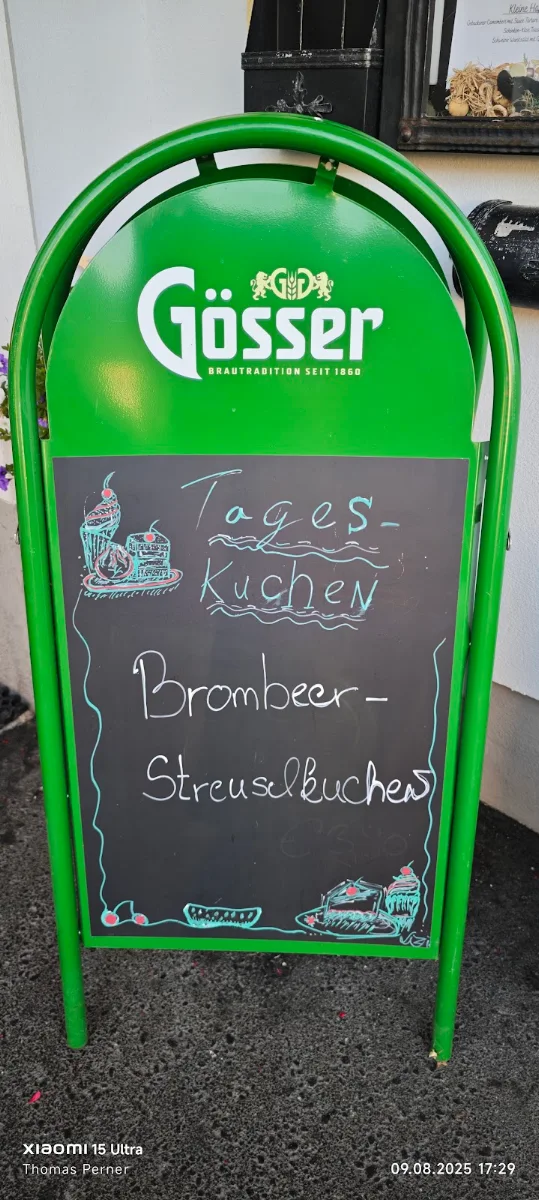 Kleine
Gösser
BRAUTRADITION SEIT 1860
Tages-
Kuchen
Brombeer-
Streuselkuchen
xiaomi 15 Ultra
Thomas Perner
09.08.2025 17:29